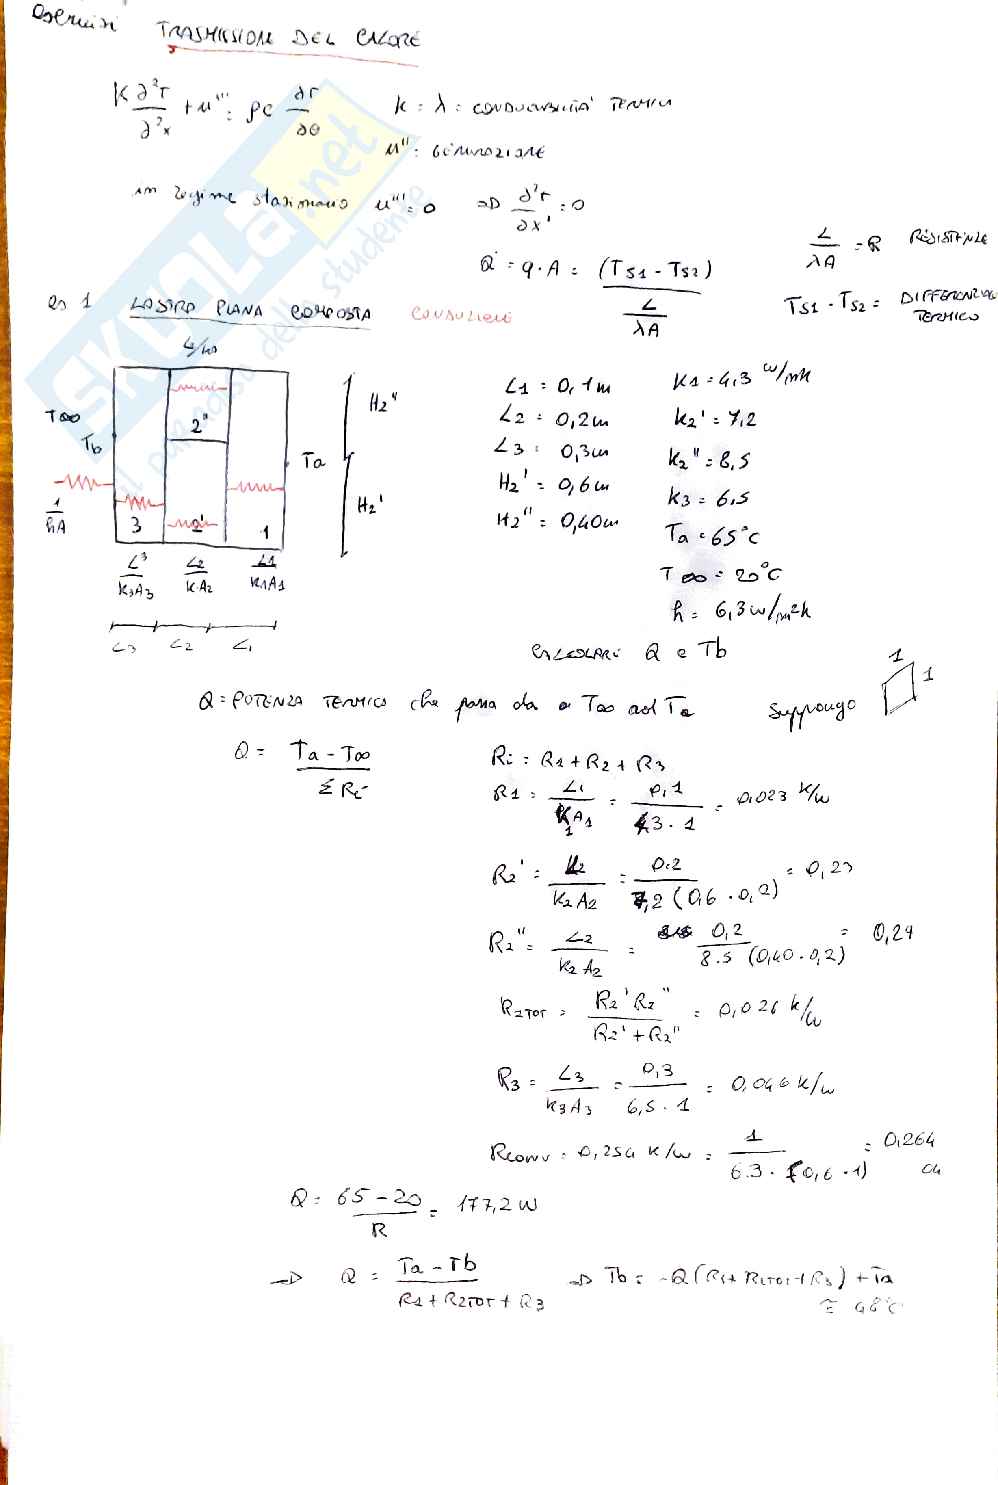 Esercizi TRASMISSIONE DEL CALORE
K ∂²T/∂²x + u''' = ρc ∂T/∂θ
K = λ = CONDUCIBILITÀ TERMICA
u'' = GENERAZIONE
in regime stazionario u''' = 0 => ∂²T/∂x² = 0
L/λA = R RESISTENZE
Q = q · A = (Ts1 - Ts2) / (L/λA)
Ts1 - Ts2 = DIFFERENZIALE TERMICO
es 1 LASTRA PIANA COMPOSTA CONDUZIONE
L1 = 0,1m
K1 = 4,3 W/mK
L2 = 0,2m
K2' = 7,2
L3 = 0,3m
K2'' = 8,5
H2' = 0,6m
K3 = 6,5
H2'' = 0,40m
Ta = 65°C
T∞ = 20°C
h = 6,3 W/m²K
T∞
Tb
2''
Ta
H2''
H2'
1/hA
3
2'
1
L3/K3A3
L2/K·A2
L1/K1A1
L3
L2
L1
CALCOLARE Q e Tb
Q = POTENZA TERMICA che passa da a T∞ ad Ta
Suppongo
1
1
Q = (Ta - T∞) / ΣRi
Ri = R1 + R2 + R3
R1 = L1/K1A1 = 0,1/(4,3 · 1) = 0,023 K/W
R2' = L2/K2A2 = 0.2/(7,2 (0,6 · 0,2)) = 0,23
R2'' = L2/K2A2 = 0,2/(8.5 (0,40 · 0,2)) = 0,29
R2TOT = R2'R2''/(R2' + R2'') = 0,026 K/W
R3 = L3/K3A3 = 0,3/(6,5 · 1) = 0,046 K/W
Rconv = 0,254 K/W = 1/(6.3 · (0,6 · 1)) = 0,264
Q = (65 - 20)/R = 177,2 W
=> Q = (Ta - Tb)/(R1 + R2TOT + R3) => Tb = -Q (R1 + R2TOT + R3) + Ta
≅ 48°C
SKUOLA.net
il paradiso dello studente